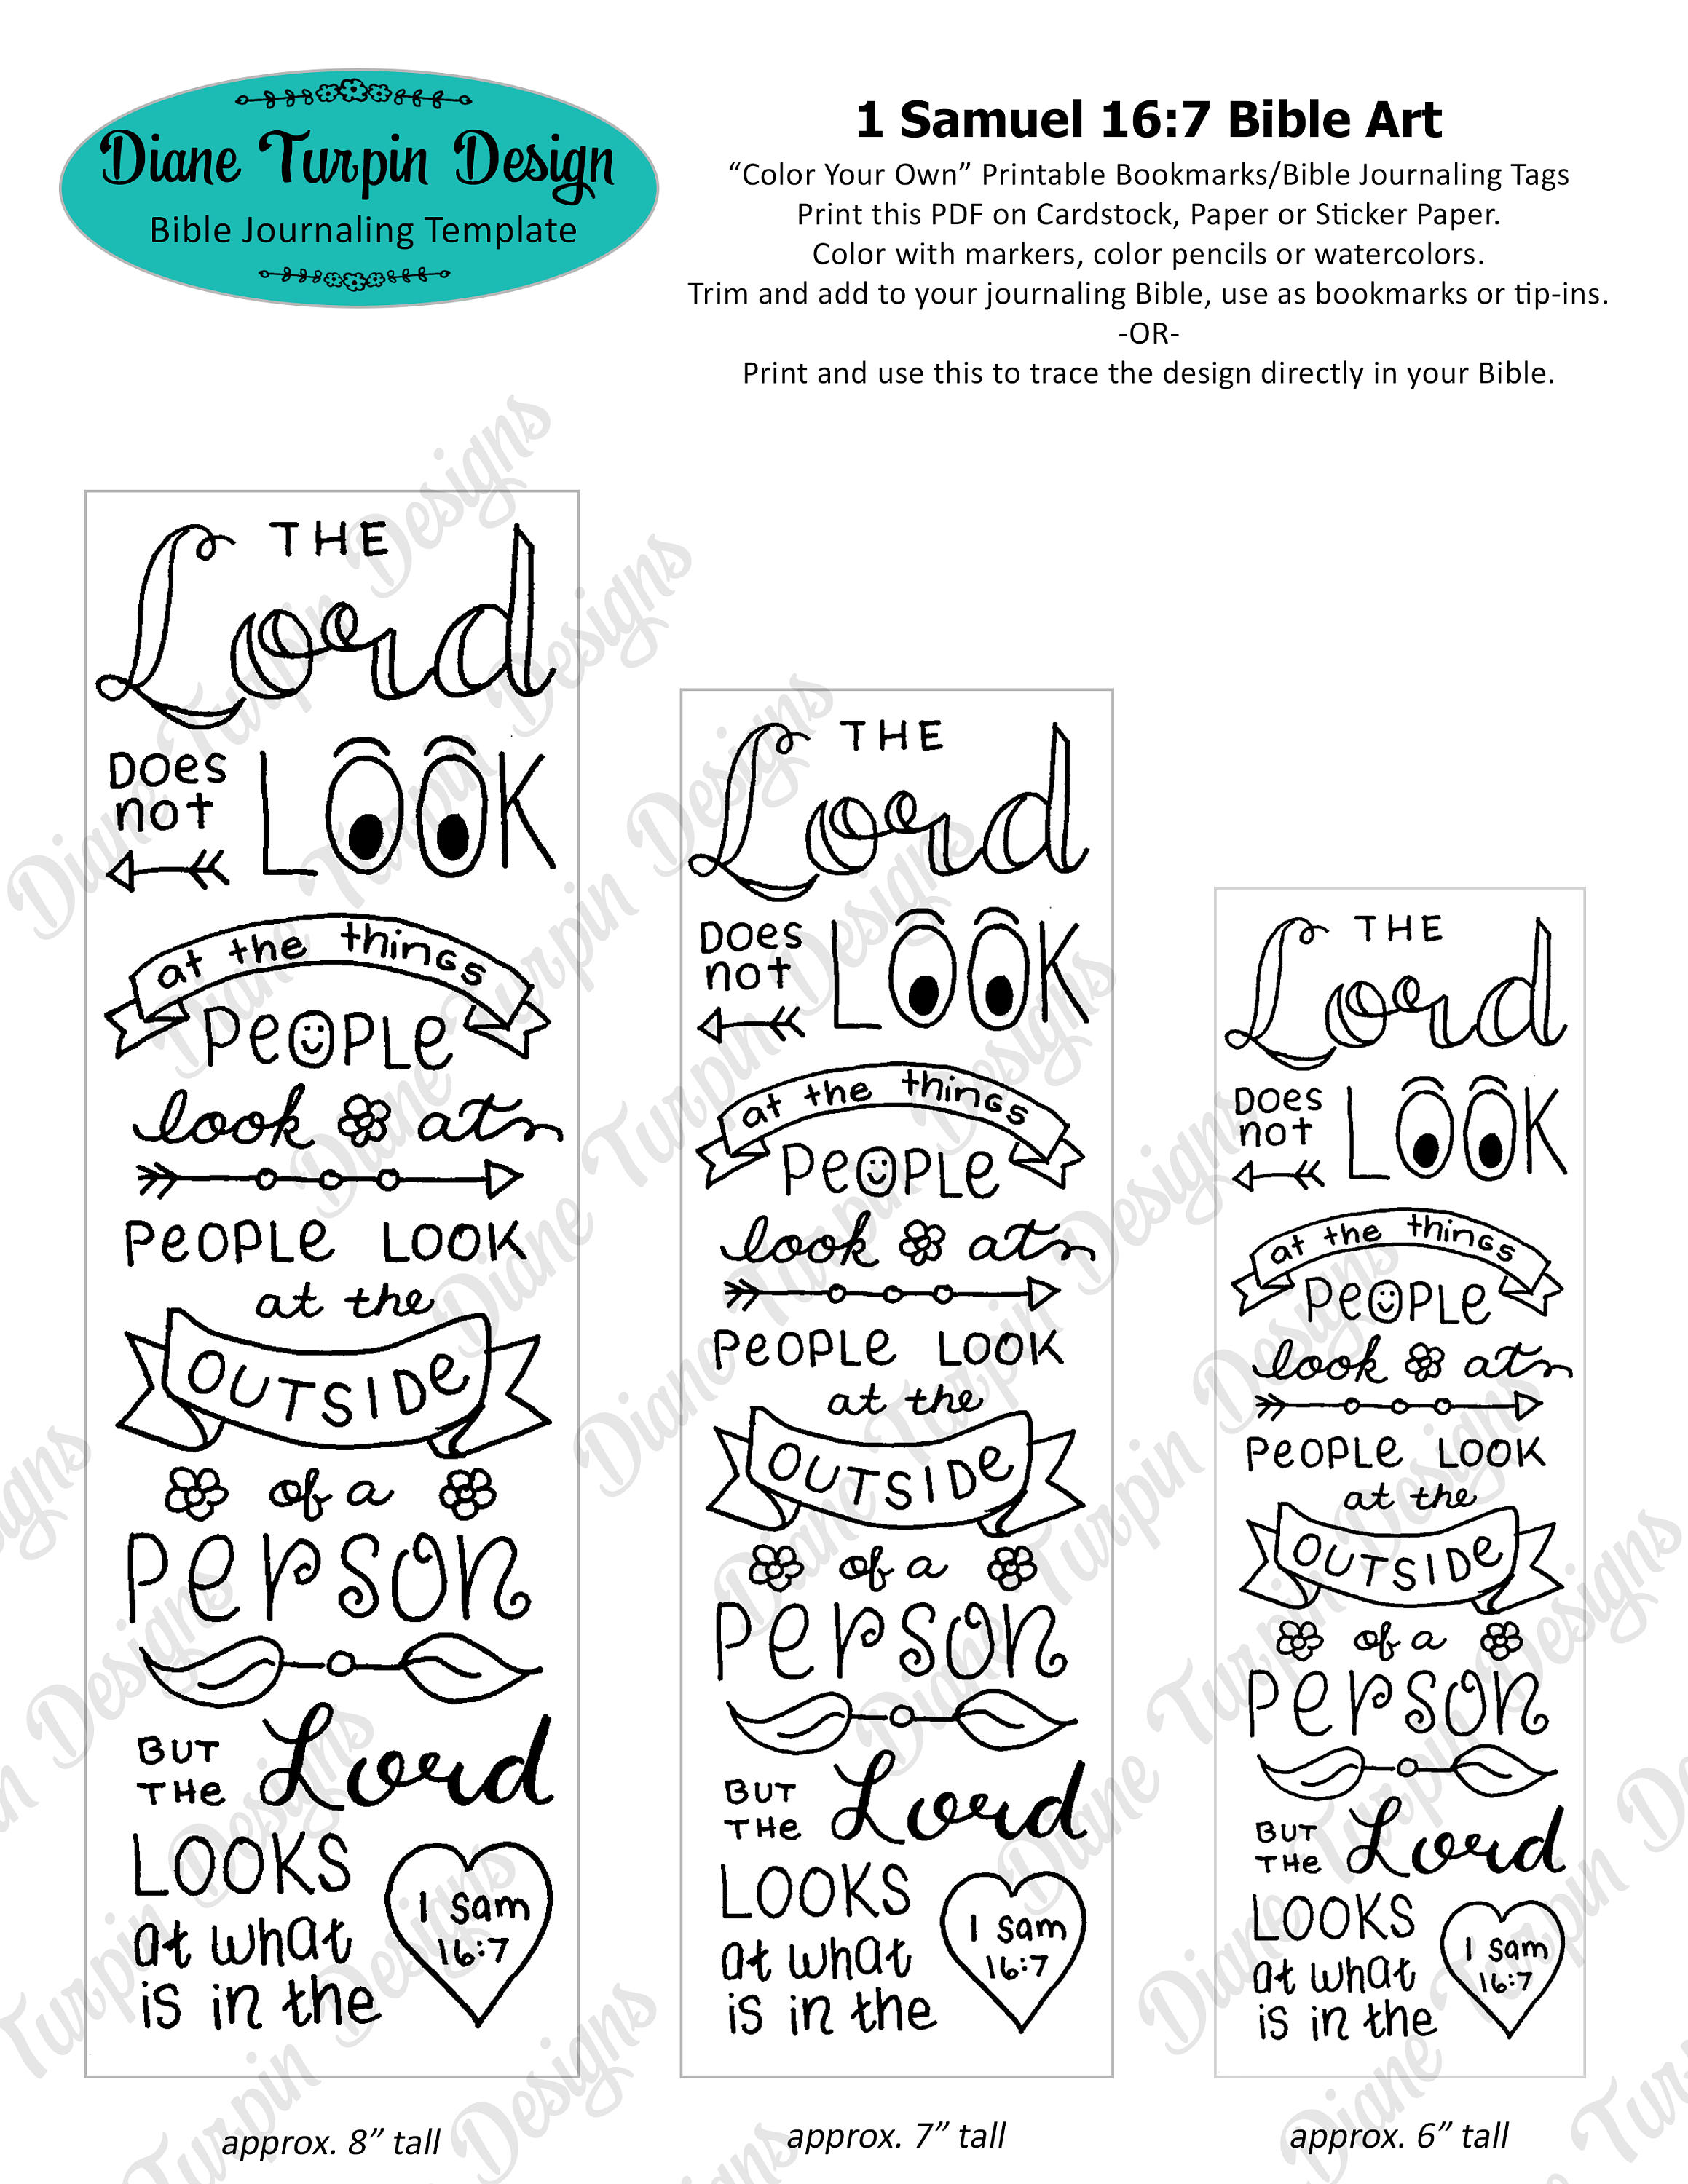 Diane Turpin Design
Bible Journaling Template
1 Samuel 16:7 Bible Art
“Color Your Own” Printable Bookmarks/Bible Journaling Tags
Print this PDF on Cardstock, Paper or Sticker Paper.
Color with markers, color pencils or watercolors.
Trim and add to your journaling Bible, use as bookmarks or tip-ins.
-OR-
Print and use this to trace the design directly in your Bible.
THE
Lord
Does not LOOK
at the things
PeOPLe
look at
PeOPLe LOOK
at the
OUTSIDe
of a
PerSOn
BUT THe Lord
LOOKS
at what
is in the
1 Sam
16:7
approx. 8” tall
THE
Lord
Does not LOOK
at the things
PeOPLe
look at
PeOPLe LOOK
at the
OUTSIDe
of a
PerSOn
BUT THe Lord
LOOKS
at what
is in the
1 Sam
16:7
approx. 7” tall
THE
Lord
Does not LOOK
at the things
PeOPLe
look at
PeOPLe LOOK
at the
OUTSIDe
of a
PerSOn
BUT THe Lord
LOOKS
at what
is in the
1 Sam
16:7
approx. 6” tall
Diane Turpin Designs